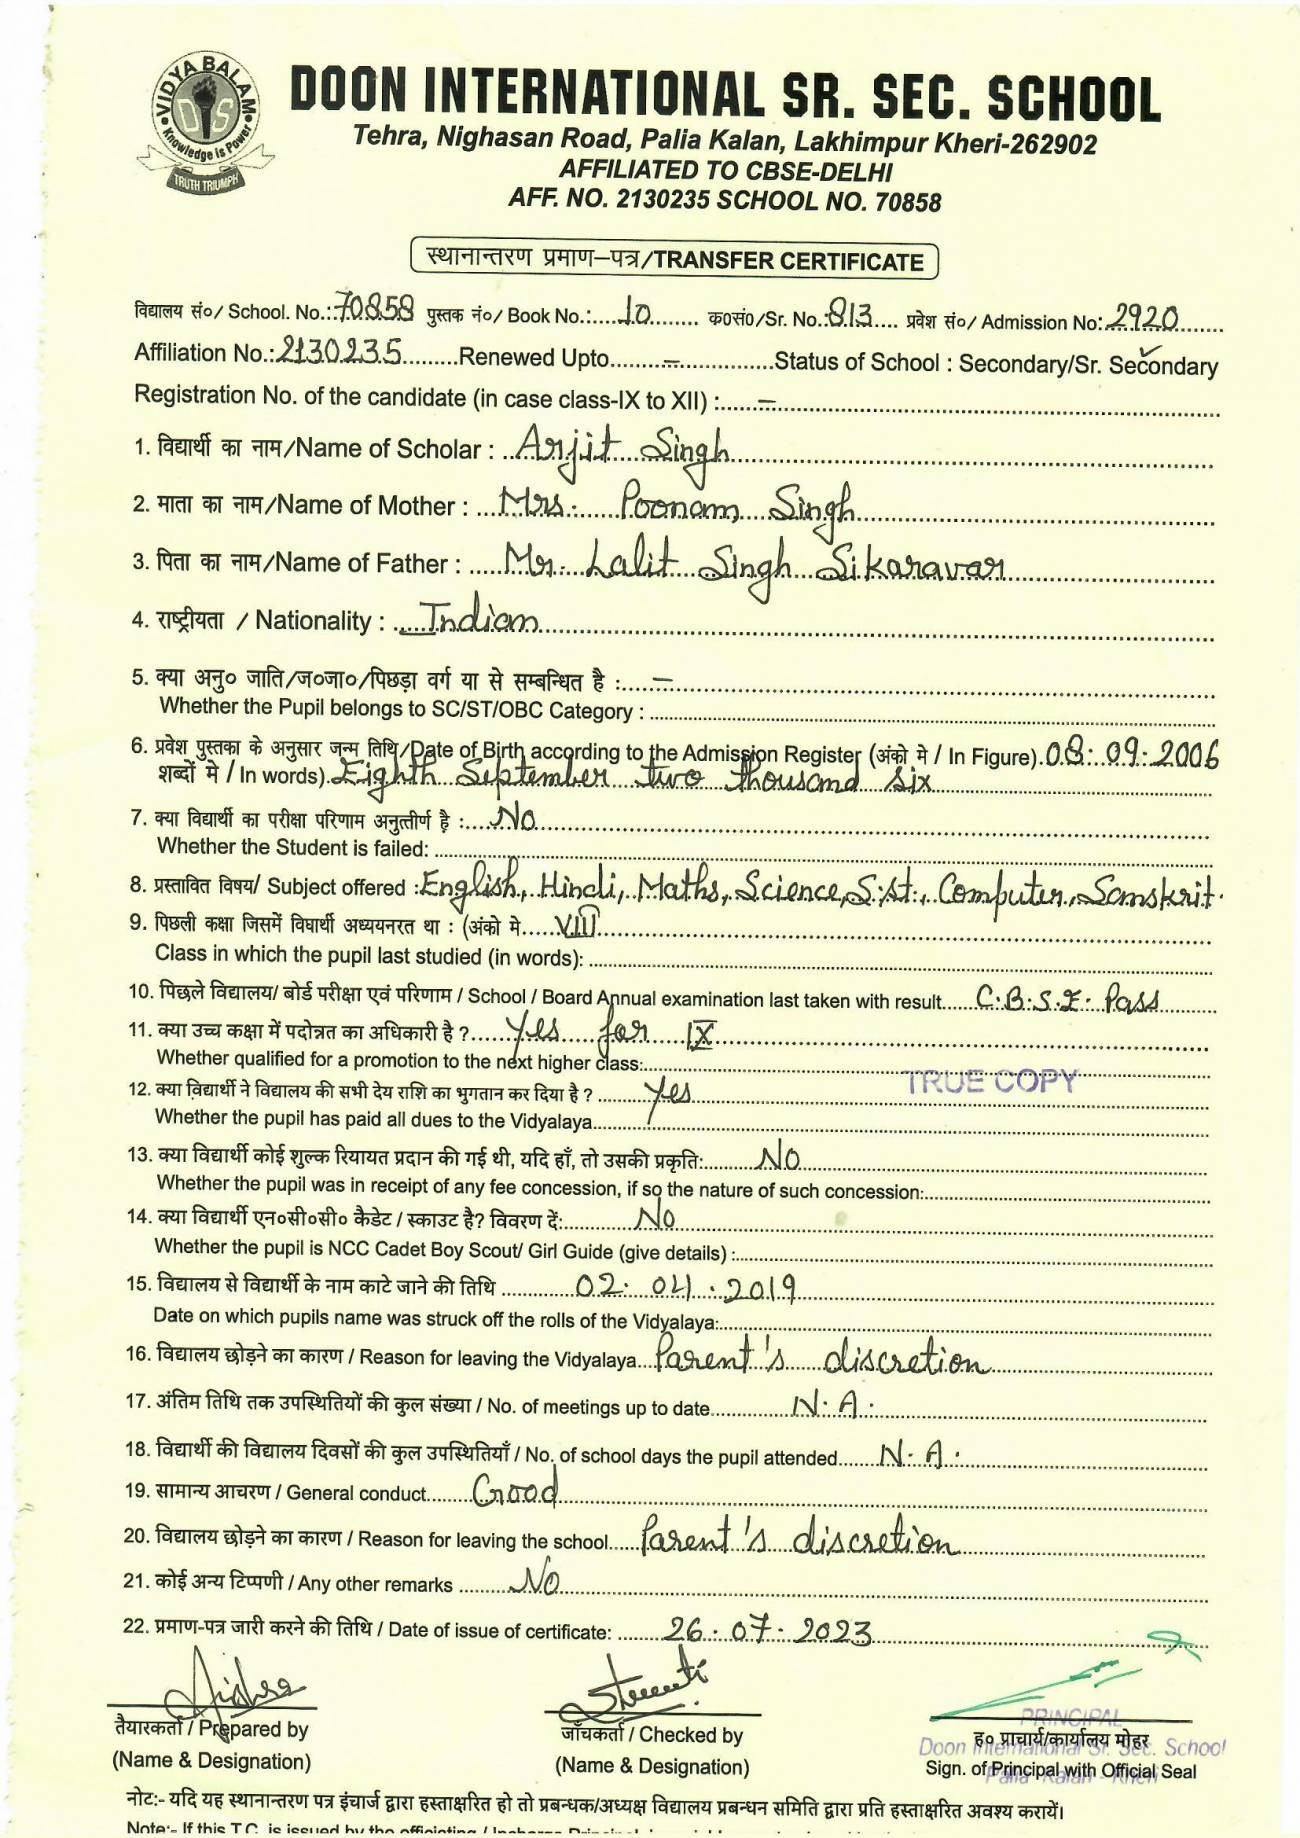 VIDYA BALAM
DIS
Knowledge is Power
TRUTH TRIUMPH
DOON INTERNATIONAL SR. SEC. SCHOOL
Tehra, Nighasan Road, Palia Kalan, Lakhimpur Kheri-262902
AFFILIATED TO CBSE-DELHI
AFF. NO. 2130235 SCHOOL NO. 70858
स्थानान्तरण प्रमाण–पत्र/TRANSFER CERTIFICATE
विद्यालय सं०/ School. No.: 70858 पुस्तक नं०/ Book No.: 10 क०सं०/Sr. No.: 813 प्रवेश सं०/ Admission No: 2920
Affiliation No.: 2130235 Renewed Upto – Status of School : Secondary/Sr. Secondary
Registration No. of the candidate (in case class-IX to XII) : –
1. विद्यार्थी का नाम/Name of Scholar : Arjit Singh
2. माता का नाम/Name of Mother : Mrs. Poonam Singh
3. पिता का नाम/Name of Father : Mr. Lalit Singh Sikaravar
4. राष्ट्रीयता / Nationality : Indian
5. क्या अनु० जाति/ज०जा०/पिछड़ा वर्ग या से सम्बन्धित है : –
Whether the Pupil belongs to SC/ST/OBC Category :
6. प्रवेश पुस्तका के अनुसार जन्म तिथि/Date of Birth according to the Admission Register (अंको मे / In Figure). 08.09.2006
शब्दों मे / In words). Eighth September two thousand six
7. क्या विद्यार्थी का परीक्षा परिणाम अनुत्तीर्ण है : No
Whether the Student is failed:
8. प्रस्तावित विषय/ Subject offered : English, Hindi, Maths, Science, S.St., Computer, Samskrit.
9. पिछली कक्षा जिसमें विघार्थी अध्ययनरत था : (अंको मे VIII
Class in which the pupil last studied (in words):
10. पिछले विद्यालय/ बोर्ड परीक्षा एवं परिणाम / School / Board Annual examination last taken with result C.B.S.E. Pass
11. क्या उच्च कक्षा में पदोन्नत का अधिकारी है ? Yes for IX
Whether qualified for a promotion to the next higher class:
TRUE COPY
12. क्या विद्यार्थी ने विद्यालय की सभी देय राशि का भुगतान कर दिया है ? Yes
Whether the pupil has paid all dues to the Vidyalaya
13. क्या विद्यार्थी कोई शुल्क रियायत प्रदान की गई थी, यदि हाँ, तो उसकी प्रकृति: No
Whether the pupil was in receipt of any fee concession, if so the nature of such concession:
14. क्या विद्यार्थी एन०सी०सी० कैडेट / स्काउट है? विवरण दें: No
Whether the pupil is NCC Cadet Boy Scout/ Girl Guide (give details) :
15. विद्यालय से विद्यार्थी के नाम काटे जाने की तिथि 02.04.2019
Date on which pupils name was struck off the rolls of the Vidyalaya:
16. विद्यालय छोड़ने का कारण / Reason for leaving the Vidyalaya Parent's discretion
17. अंतिम तिथि तक उपस्थितियों की कुल संख्या / No. of meetings up to date N.A.
18. विद्यार्थी की विद्यालय दिवसों की कुल उपस्थितियाँ / No. of school days the pupil attended N.A.
19. सामान्य आचरण / General conduct Good
20. विद्यालय छोड़ने का कारण / Reason for leaving the school Parent's discretion
21. कोई अन्य टिप्पणी / Any other remarks No
22. प्रमाण-पत्र जारी करने की तिथि / Date of issue of certificate: 26.07.2023
PRINCIPAL
तैयारकर्ता / Prepared by जाँचकर्ता / Checked by ह० प्राचार्य/कार्यालय मोहर
Doon International Sr. Sec. School
(Name & Designation) (Name & Designation) Sign. of Principal with Official Seal
Palia Kalan - Kheri
नोट:- यदि यह स्थानान्तरण पत्र इंचार्ज द्वारा हस्ताक्षरित हो तो प्रबन्धक/अध्यक्ष विद्यालय प्रबन्धन समिति द्वारा प्रति हस्ताक्षरित अवश्य करायें।
Note:- If this T.C. is issued by the officiating / Incharge